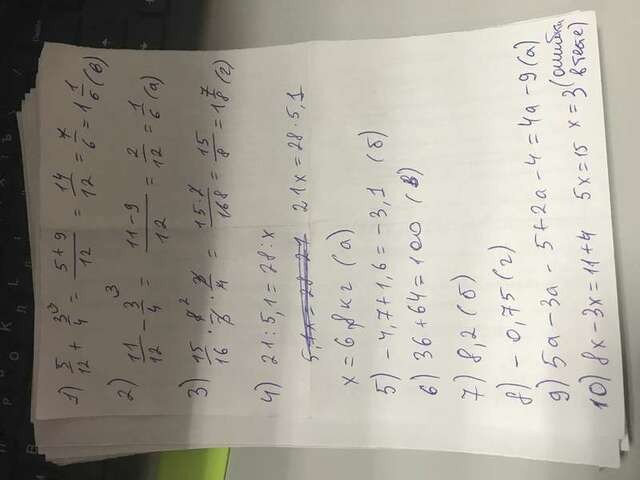 1) 5/12 + 3/4 ³ = (5+9)/12 = 14/12 = 7/6 = 1 1/6 (в)
2) 11/12 - 3/4 ³ = (11-9)/12 = 2/12 = 1/6 (а)
3) 15/16 · 8/3 ² · 3/4 = 15·2/168 = 15/8 = 1 7/8 (г)
4) 21:5,1=28:x
5,1x=28·21 21x=28·5,1
x=6,8кг (а)
5) -4,7+1,6=-3,1 (б)
6) 36+64=100 (в)
7) 8,2 (б)
8) -0,75 (г)
9) 5а-3а-5+2а-4=4а-9 (а)
10) 8x-3x=11+4 5x=15 x=3 (ошибки
в тесте)